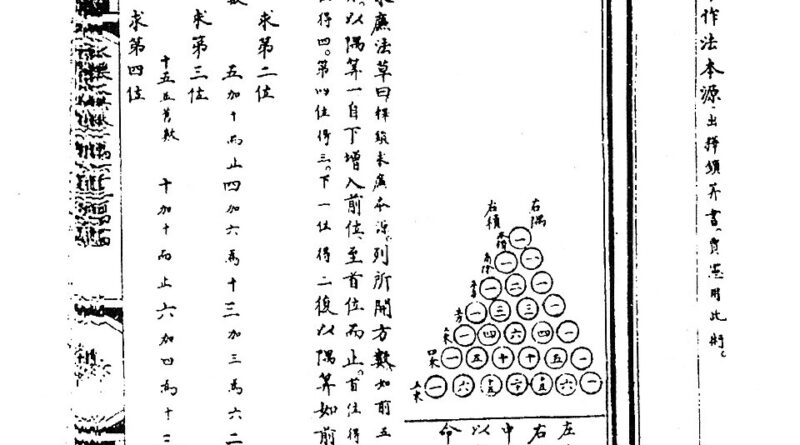 作法本源 出釋鎖筭書。賈憲用此術。
右隅
右積
一
一 一
一 二 一
一 三 三 一
一 四 六 四 一
一 五 十 十 五 一
一 六 十五 二十 十五 六 一
左
右
中
以
命
廉法草曰釋鎖求廉本源。列所開方數如前五
以隅筭一自下增入前位至首位而止。首位得
得四。第四位得三。下一位得二復以隅筭如前
求第二位
五加十而止四加六爲十三加三爲六二
求第三位
十加十而止六加四爲十
求第四位